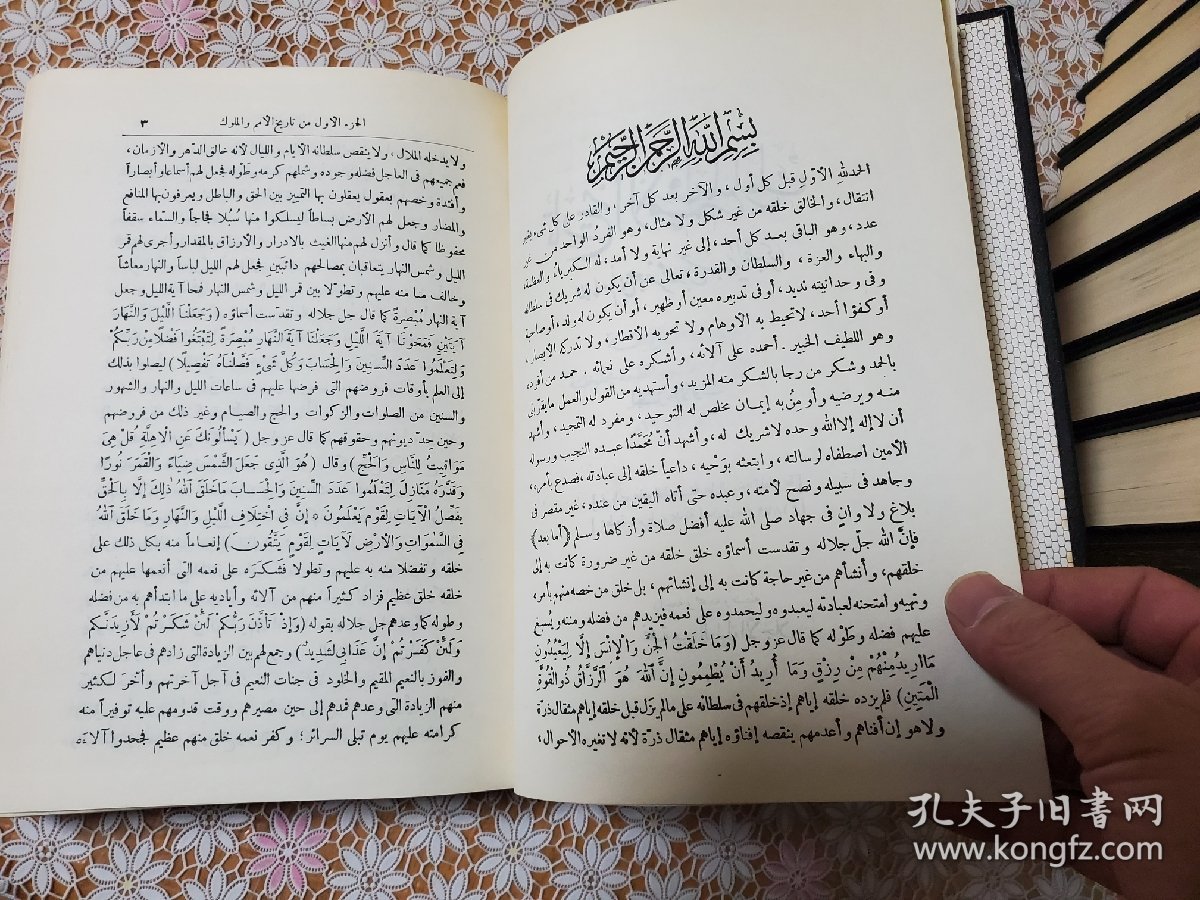 بسم الله الرحمن الرحيم
الحمد لله الأول قبل كل أول ، والآخر بعد كل آخر ، والقادر على كل شيء بغير
انتقال ، والخالق خلقه من غير شكل ولا مثال ، وهو الفرد الواحد من غير
عدد ، وهو الباقى بعد كل أحد ، إلى غير نهاية ولا أمد ، له الكبرياء والعظمة
والبهاء والعزة ، والسلطان والقدرة ، تعالى عن أن يكون له شريك فى سلطانه
وفى وحدانيته نديد ، أو فى تدبيره معين أو ظهير ، أو أن يكون له ولد ، أو صاحبة
أو كفوا أحد ، لا تحيط به الأوهام ولا تحويه الأقطار ، ولا تدركه الأبصار
وهو اللطيف الخبير . أحمده على آلائه ، وأشكره على نعمائه . حمد من أفرده
بالحمد وشكر من رجا بالشكر منه المزيد ، وأستهديه من القول والعمل ما يقربنى
منه ويرضيه وأومن به إيمان مخلص له التوحيد ، ومفرد له التمجيد ، وأشهد
أن لا إله إلا الله وحده لا شريك له ، وأشهد أن محمدا عبده النجيب ورسوله
الأمين اصطفاه لرسالته ، وابتعثه بوحيه ، داعيا خلقه إلى عبادته ، فصدع بأمره ،
وجاهد فى سبيله ونصح لأمته ، وعبده حتى أتاه اليقين من عنده ، غير مقصر فى
بلاغ ولا وان فى جهاد صلى الله عليه أفضل صلاة وأزكاها وسلم (أما بعد)
فإن الله جل جلاله وتقدست أسماؤه خلق خلقه من غير ضرورة كانت به إلى
خلقهم ، وأنشأهم من غير حاجة كانت به إلى إنشائهم ، بل خلق من خصه منهم بأمره
ونهيه وامتحنه لعبادته ليعبدوه وليحمدوه على نعمه فيزيدهم من فضله ومننه ويسبغ
عليهم فضله وطوله كما قال عز وجل (وَمَا خَلَقْتُ الْجِنَّ وَالْإِنْسَ إِلَّا لِيَعْبُدُونِ
مَا أُرِيدُ مِنْهُمْ مِنْ رِزْقٍ وَمَا أُرِيدُ أَنْ يُطْعِمُونِ إِنَّ اللهَ هُوَ الرَّزَّاقُ ذُو الْقُوَّةِ
الْمَتِينِ) فلم يزده خلقه إياهم إذ خلقهم فى سلطانه على ما لم يزل قبل خلقه إياهم مثقال ذرة
ولا هو إن أفناهم وأعدمهم ينقصه إفناؤه إياهم مثقال ذرة لأنه لا تغيره الأحوال ،
الجزء الأول من تاريخ الأمم والملوك ٣
ولا يدخله الملال ، ولا ينقص سلطانه الأيام والليال لأنه خالق الدهر والأزمان ،
فعم جميعهم فى العاجل فضله وجوده وشملهم كرمه وطوله فجعل لهم أسماعا وأبصارا
وأفئدة وخصهم بعقول يعقلون بها التمييز بين الحق والباطل ويعرفون بها المنافع
والمضار وجعل لهم الأرض بساطا ليسلكوا منها سُبُلا فجاجا والسماء سقفا
محفوظا كما قال وأنزل لهم منها الغيث بالادرار والأرزاق بالمقدار وأجرى لهم قمر
الليل وشمس النهار يتعاقبان بمصالحهم دائبين فجعل لهم الليل لباسا والنهار معاشا
وخالف منا منه عليهم وتطولا بين قمر الليل وشمس النهار فمحا آية الليل وجعل
آية النهار مُبْصِرةً كما قال جل جلاله وتقدست أسماؤه (وَجَعَلْنَا اللَّيْلَ وَالنَّهَارَ
آيَتَيْنِ فَمَحَوْنَا آيَةَ اللَّيْلِ وَجَعَلْنَا آيَةَ النَّهَارِ مُبْصِرَةً لِتَبْتَغُوا فَضْلًا مِنْ رَبِّكُمْ
وَلِتَعْلَمُوا عَدَدَ السِّنِينَ وَالْحِسَابَ وَكُلَّ شَيْءٍ فَصَّلْنَاهُ تَفْصِيلًا) ليصلوا بذلك
إلى العلم بأوقات فروضهم التى فرضها عليهم فى ساعات الليل والنهار والشهور
والسنين من الصلوات والزكوات والحج والصيام وغير ذلك من فروضهم
وحين حِلّ ديونهم وحقوقهم كما قال عز وجل (يَسْأَلُونَكَ عَنِ الْأَهِلَّةِ قُلْ هِيَ
مَوَاقِيتُ لِلنَّاسِ وَالْحَجِّ) وقال (هُوَ الَّذِي جَعَلَ الشَّمْسَ ضِيَاءً وَالْقَمَرَ نُورًا
وَقَدَّرَهُ مَنَازِلَ لِتَعْلَمُوا عَدَدَ السِّنِينَ وَالْحِسَابَ مَا خَلَقَ اللهُ ذَلِكَ إِلَّا بِالْحَقِّ
يُفَصِّلُ الْآيَاتِ لِقَوْمٍ يَعْلَمُونَ * إِنَّ فِي اخْتِلَافِ اللَّيْلِ وَالنَّهَارِ وَمَا خَلَقَ اللهُ
فِي السَّمَوَاتِ وَالْأَرْضِ لَآيَاتٍ لِقَوْمٍ يَتَّقُونَ) إنعاما منه بكل ذلك على
خلقه وتفضلا منه به عليهم وتطولا فشكره على نعمه التى أنعمها عليهم من
خلقه خلق عظيم فزاد كثيرا منهم من آلائه وأياديه على ما ابتدأهم به من فضله
وطوله كما وعدهم جل جلاله بقوله (وَإِذْ تَأَذَّنَ رَبُّكُمْ لَئِنْ شَكَرْتُمْ لَأَزِيدَنَّكُمْ
وَلَئِنْ كَفَرْتُمْ إِنَّ عَذَابِي لَشَدِيدٌ) وجمع لهم بين الزيادة التى زادهم فى عاجل دنياهم
والفوز بالنعيم المقيم والخلود فى جنات النعيم فى آجل آخرتهم وأخر لكثير
منهم الزيادة التى وعدهم فمدهم إلى حين مصيرهم ووقت قدومهم عليه توفيرا منه
كرامته عليهم يوم تبلى السرائر ؛ وكفر نعمه خلق منهم عظيم فجحدوا آلاءه
孔夫子旧书网
www.kongfz.com